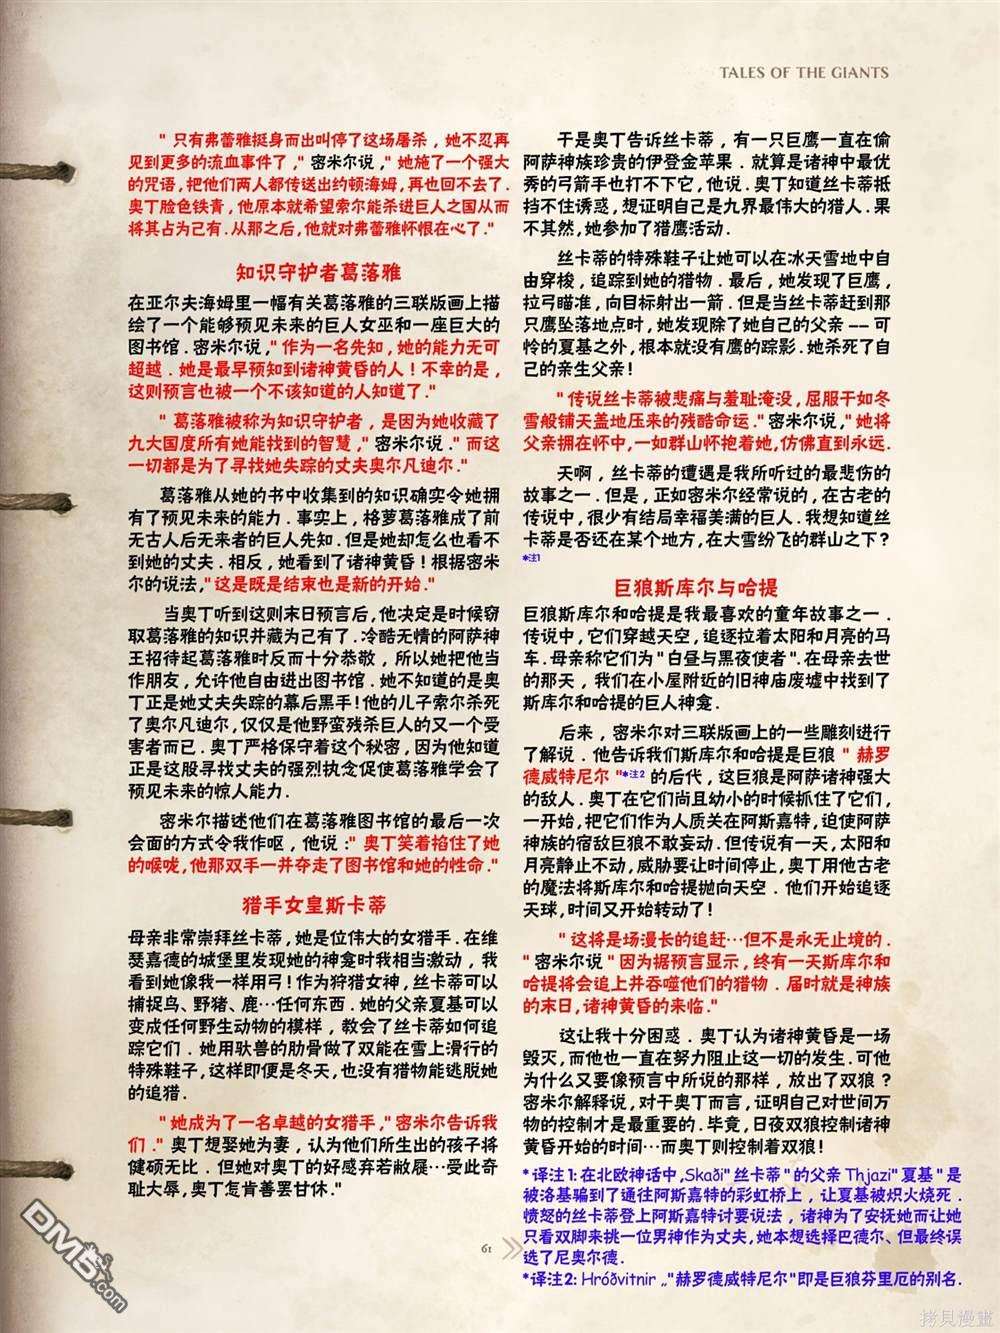 TALES OF THE GIANTS
" 只有弗蕾雅挺身而出叫停了这场屠杀，她不忍再
见到更多的流血事件了，" 密米尔说，" 她施了一个强大
的咒语，把他们两人都传送出约顿海姆，再也回不去了．
奥丁脸色铁青，他原本就希望索尔能杀进巨人之国从而
将其占为己有．从那之后，他就对弗蕾雅怀恨在心了．"
知识守护者葛落雅
在亚尔夫海姆里一幅有关葛落雅的三联版画上描
绘了一个能够预见未来的巨人女巫和一座巨大的
图书馆．密米尔说，" 作为一名先知，她的能力无可
超越．她是最早预知到诸神黄昏的人！不幸的是，
这则预言也被一个不该知道的人知道了．"
" 葛落雅被称为知识守护者，是因为她收藏了
九大国度所有她能找到的智慧，" 密米尔说．" 而这
一切都是为了寻找她失踪的丈夫奥尔凡迪尔．"
葛落雅从她的书中收集到的知识确实令她拥
有了预见未来的能力．事实上，格萝葛落雅成了前
无古人后无来者的巨人先知．但是她却怎么也看不
到她的丈夫．相反，她看到了诸神黄昏！根据密米
尔的说法，" 这是既是结束也是新的开始．"
当奥丁听到这则末日预言后，他决定是时候窃
取葛落雅的知识并藏为己有了．冷酷无情的阿萨神
王招待起葛落雅时反而十分恭敬，所以她把他当
作朋友，允许他自由进出图书馆．她不知道的是奥
丁正是她丈夫失踪的幕后黑手！他的儿子索尔杀死
了奥尔凡迪尔，仅仅是他野蛮残杀巨人的又一个受
害者而已．奥丁严格保守着这个秘密，因为他知道
正是这股寻找丈夫的强烈执念促使葛落雅学会了
预见未来的惊人能力．
密米尔描述他们在葛落雅图书馆的最后一次
会面的方式令我作呕，他说：" 奥丁笑着掐住了她
的喉咙，他那双手一并夺走了图书馆和她的性命．"
猎手女皇斯卡蒂
母亲非常崇拜丝卡蒂，她是位伟大的女猎手．在维
瑟嘉德的城堡里发现她的神龛时我相当激动，我
看到她像我一样用弓！作为狩猎女神，丝卡蒂可以
捕捉鸟、野猪、鹿…任何东西．她的父亲夏基可以
变成任何野生动物的模样，教会了丝卡蒂如何追
踪它们．她用驮兽的肋骨做了双能在雪上滑行的
特殊鞋子，这样即便是冬天，也没有猎物能逃脱她
的追猎．
" 她成为了一名卓越的女猎手，" 密米尔告诉我
们．" 奥丁想娶她为妻，认为他们所生出的孩子将
健硕无比．但她对奥丁的好感弃若敝屣…受此奇
耻大辱，奥丁怎肯善罢甘休．"
于是奥丁告诉丝卡蒂，有一只巨鹰一直在偷
阿萨神族珍贵的伊登金苹果．就算是诸神中最优
秀的弓箭手也打不下它，他说．奥丁知道丝卡蒂抵
挡不住诱惑，想证明自己是九界最伟大的猎人．果
不其然，她参加了猎鹰活动．
丝卡蒂的特殊鞋子让她可以在冰天雪地中自
由穿梭，追踪到她的猎物．最后，她发现了巨鹰，
拉弓瞄准，向目标射出一箭．但是当丝卡蒂赶到那
只鹰坠落地点时，她发现除了她自己的父亲 —— 可
怜的夏基之外，根本就没有鹰的踪影．她杀死了自
己的亲生父亲！
" 传说丝卡蒂被悲痛与羞耻淹没，屈服于如冬
雪般铺天盖地压来的残酷命运．" 密米尔说，" 她将
父亲拥在怀中，一如群山怀抱着她，仿佛直到永远．
天啊，丝卡蒂的遭遇是我所听过的最悲伤的
故事之一．但是，正如密米尔经常说的，在古老的
传说中，很少有结局幸福美满的巨人．我想知道丝
卡蒂是否还在某个地方，在大雪纷飞的群山之下？
*注1
巨狼斯库尔与哈提
巨狼斯库尔和哈提是我最喜欢的童年故事之一．
传说中，它们穿越天空，追逐拉着太阳和月亮的马
车．母亲称它们为 " 白昼与黑夜使者 "．在母亲去世
的那天，我们在小屋附近的旧神庙废墟中找到了
斯库尔和哈提的巨人神龛．
后来，密米尔对三联版画上的一些雕刻进行
了解说．他告诉我们斯库尔和哈提是巨狼 " 赫罗
德威特尼尔 "*注2 的后代，这巨狼是阿萨诸神强大
的敌人．奥丁在它们尚且幼小的时候抓住了它们，
一开始，把它们作为人质关在阿斯嘉特，迫使阿萨
神族的宿敌巨狼不敢妄动．但传说有一天，太阳和
月亮静止不动，威胁要让时间停止，奥丁用他古老
的魔法将斯库尔和哈提抛向天空．他们开始追逐
天球，时间又开始转动了！
" 这将是场漫长的追赶…但不是永无止境的．
" 密米尔说 " 因为据预言显示，终有一天斯库尔和
哈提将会追上并吞噬他们的猎物．届时就是神族
的末日，诸神黄昏的来临．"
这让我十分困惑．奥丁认为诸神黄昏是一场
毁灭，而他也一直在努力阻止这一切的发生．可他
为什么又要像预言中所说的那样，放出了双狼？
密米尔解释说，对于奥丁而言，证明自己对世间万
物的控制才是最重要的．毕竟，日夜双狼控制诸神
黄昏开始的时间…而奥丁则控制着双狼！
*译注1：在北欧神话中，Skaði" 丝卡蒂 " 的父亲 Thjazi" 夏基 " 是
被洛基骗到了通往阿斯嘉特的彩虹桥上，让夏基被炽火烧死．
愤怒的丝卡蒂登上阿斯嘉特讨要说法，诸神为了安抚她而让她
只看双脚来挑一位男神作为丈夫，她本想选择巴德尔、但最终误
选了尼奥尔德．
*译注2: Hróðvitnir „"赫罗德威特尼尔"即是巨狼芬里厄的别名．
61
DM5.com
拷貝漫畫